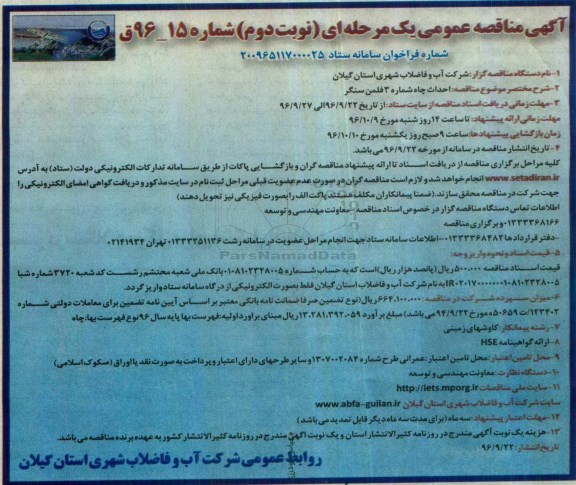 آگهی مناقصه عمومی یک مرحله ای (نوبت دوم) شماره ۱۵_۹۶ق
شماره فراخوان سامانه ستاد ۲۰۰۹۶۵۱۱۷۰۰۰۰۲۵
۱-نام دستگاه مناقصه گزار: شرکت آب و فاضلاب شهری استان گیلان
۲-شرح مختصر موضوع مناقصه: احداث چاه شماره ۳ فلمن سنگر
۳-مهلت زمانی دریافت اسناد مناقصه از سایت ستاد: از تاریخ ۹۶/۹/۲۲ الی ۹۶/۹/۲۷
مهلت زمانی ارائه پیشنهاد: تا ساعت ۱۴ روز شنبه مورخ ۹۶/۱۰/۹
زمان بازگشایی پیشنهادها: ساعت ۹ صبح روز یکشنبه مورخ ۹۶/۱۰/۱۰
۴-تاریخ انتشار مناقصه در سامانه از مورخه ۹۶/۹/۲۲ می باشد.
کلیه مراحل برگزاری مناقصه از دریافت اسناد تا ارائه پیشنهاد مناقصه گران و بازگشایی پاکات از طریق سامانه تدارکات الکترونیکی دولت (ستاد) به آدرس
www.setadiran.ir انجام خواهد شد و لازم است مناقصه گران در صورت عدم عضویت قبلی مراحل ثبت نام در سایت مذکور و دریافت گواهی امضای الکترونیکی را
جهت شرکت در مناقصه محقق سازند. (ضمنا پیمانکاران مکلف هستند پاکت الف را بصورت فیزیکی نیز تحویل دهند)
اطلاعات تماس دستگاه مناقصه گزار در خصوص اسناد مناقصه -معاونت مهندسی و توسعه
۰۱۳۳۳۳۶۸۱۶۶ برگزاری مناقصه
-دفتر قراردادها ۰۱۳۳۳۳۶۸۴۸۲ -اطلاعات سامانه ستاد جهت انجام مراحل عضویت در سامانه رشت ۰۱۳۳۳۲۵۱۱۳۶ تهران ۰۲۱۴۱۹۳۴
۵-قیمت اسناد و نحوه واریز وجه:
قیمت اسناد مناقصه ۵۰۰,۰۰۰ ریال (به پانصد هزار ریال) است که به حساب شماره ۰۱۰۸۱۰۳۳۲۸۰۰۵ بانک ملی شعبه محتشم رشت کد شعبه ۳۷۲۰ شماره شبا
بنام شرکت آب و فاضلاب استان گیلان فقط بصورت الکترونیکی از درگاه سامانه ستاد واریز گردد.
۶-میزان سپرده شرکت در مناقصه: ۶۶۴,۱۰۰,۰۰۰ ریال (نوع تضمین صرفا ضمانت نامه بانکی معتبر بر اساس آیین نامه تضمین برای معاملات دولتی شماره
۱۲۳۴۰۲/ت۵۰۶۵۹ه مورخ ۹۴/۹/۲۲ می باشد) مبلغ برآورد ۱۳,۲۸۱,۳۹۲,۰۵۹ ریال مبنای برآورد اولیه: فهرست بها پایه سال ۹۶ نوع فهرست بها: چاه
۷-رشته پیمانکار: کاوشهای زمینی
۸-ارائه گواهینامه HSE
۹-محل تامین اعتبار: محل تامین اعتبار: عمرانی طرح شماره ۱۳۰۷۰۰۲۰۸۴ و سایر طرحهای دارای اعتبار و پرداخت به صورت نقد یا اوراق (صکوک اسلامی)
۱۰-دستگاه نظارت: معاونت مهندسی و توسعه
۱۱-سایت ملی مناقصات http://iets.mporg.ir
سایت شرکت آب و فاضلاب شهری استان گیلان www.abfa-guilan.ir
۱۲-مهلت اعتبار پیشنهاد: سه ماه (برای مدت سه ماه دیگر قابل تمدید می باشد)
۱۳-هزینه یک نوبت آگهی مندرج در روزنامه کثیر الانتشار استان و یک نوبت آگهی مندرج در روزنامه کثیر الانتشار کشور به عهده برنده مناقصه می باشد.
تاریخ انتشار: ۹۶/۹/۲۲
روابط عمومی شرکت آب و فاضلاب شهری استان گیلان
ParsNamadData